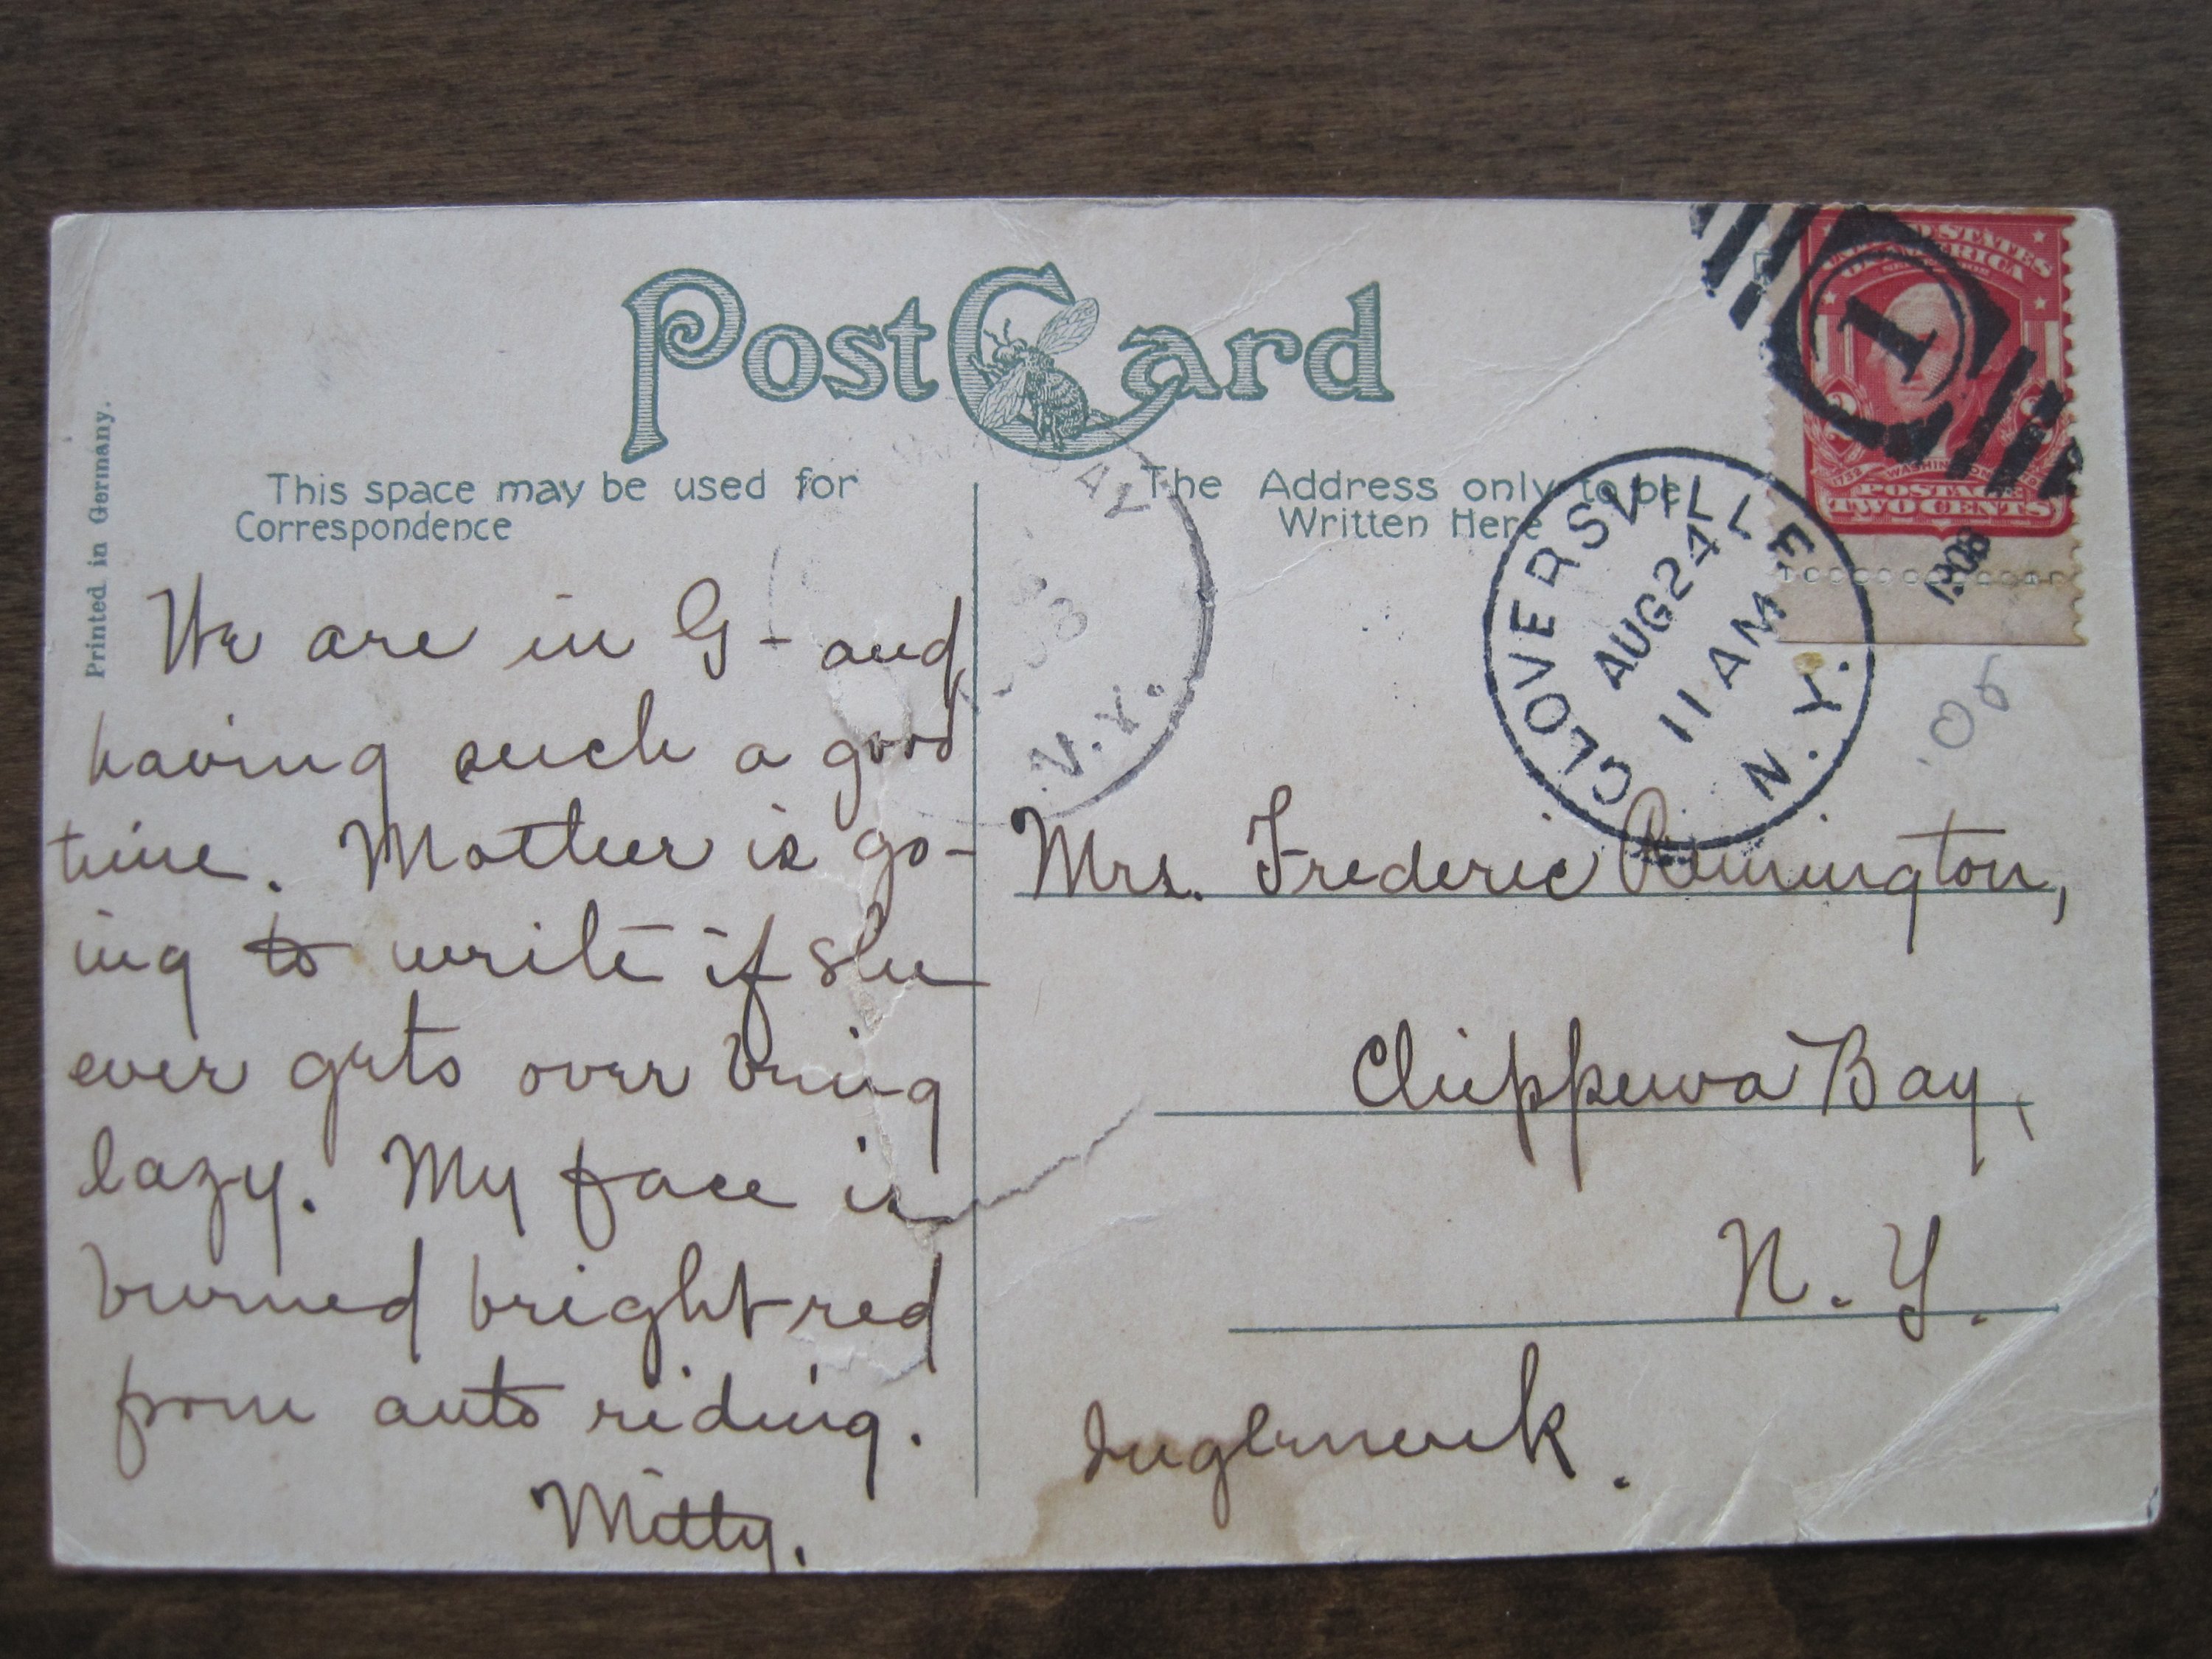 Printed in Germany.
Post Card
This space may be used for
Correspondence
The Address only to be
Written Here
UNITED STATES
OF AMERICA
WASHINGTON
POSTAGE
TWO CENTS
1
1908
GLOVERSVILLE
AUG 24
11 AM
N.Y.
BAY
N.Y.
'08
We are in G - and
having such a good
time. Mother is go-
ing to write if she
ever gets over being
lazy. My face is
burned bright red
from auto riding.
Mitty.
Mrs. Frederic Remington,
Chippewa Bay,
N. Y.
Ingleneuk.